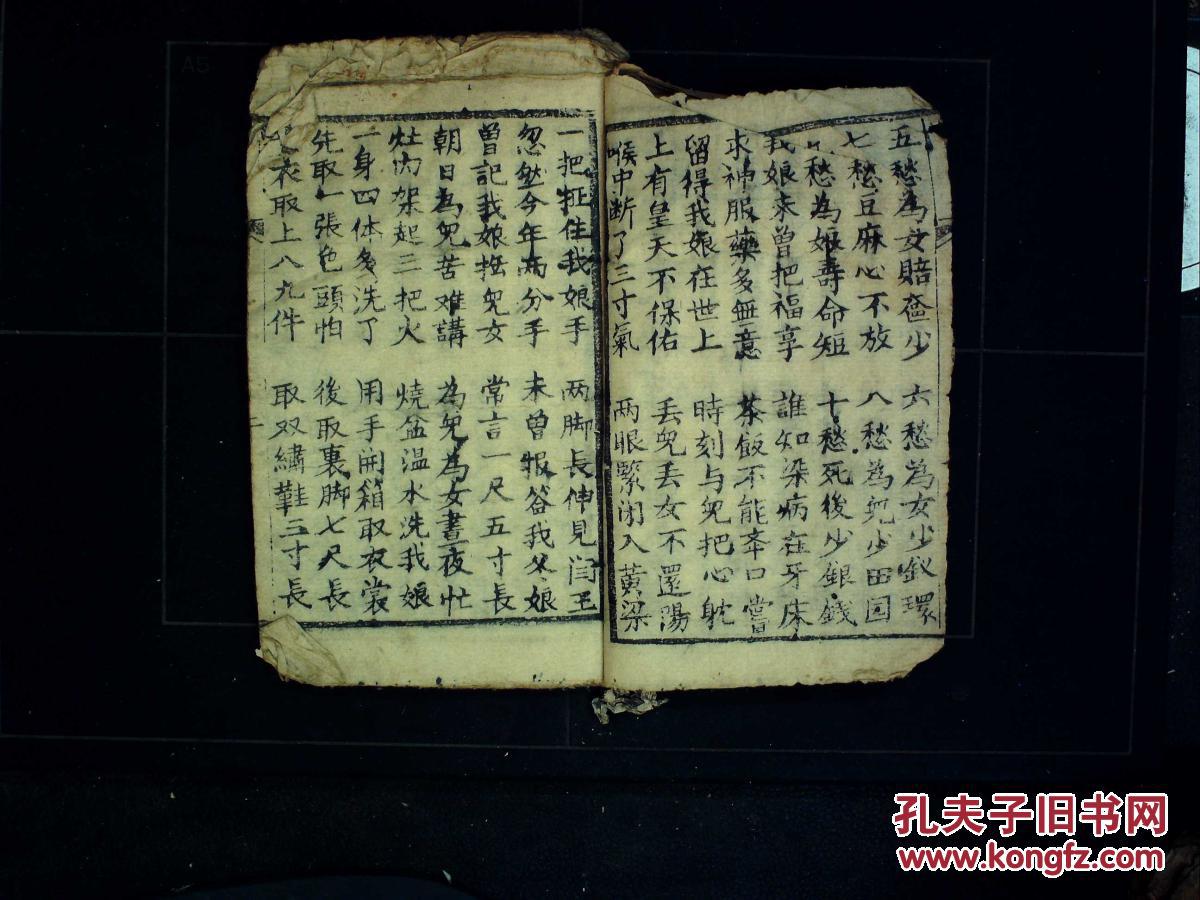 五愁為女賠奩少 六愁為女少釵環
七愁豆麻心不放 八愁為兒少田园
愁為娘壽命短 十愁死後少銀錢
我娘未曾把福享 誰知染病在牙床
求神服藥多無意 茶飯不能本口嘗
留得我娘在世上 時刻与兒把心躭
上有皇天不保佑 丢兒丢女不還陽
喉中断了三寸氣 两眼緊闭入黄梁
一把扯住我娘手 两脚長伸見闫王
忽然今年两分手 未曾报答我父娘
曾記我娘撫兒女 常言一尺五寸長
朝日為兒苦难講 為兒為女晝夜忙
灶内架起三把火 燒盆温水洗我娘
一身四体多洗了 用手開箱取衣裳
先取一張色頭怕 後取裏脚七尺長
衣取上八九件 取双繡鞋三寸長
A5
孔夫子旧书网
www.kongfz.com